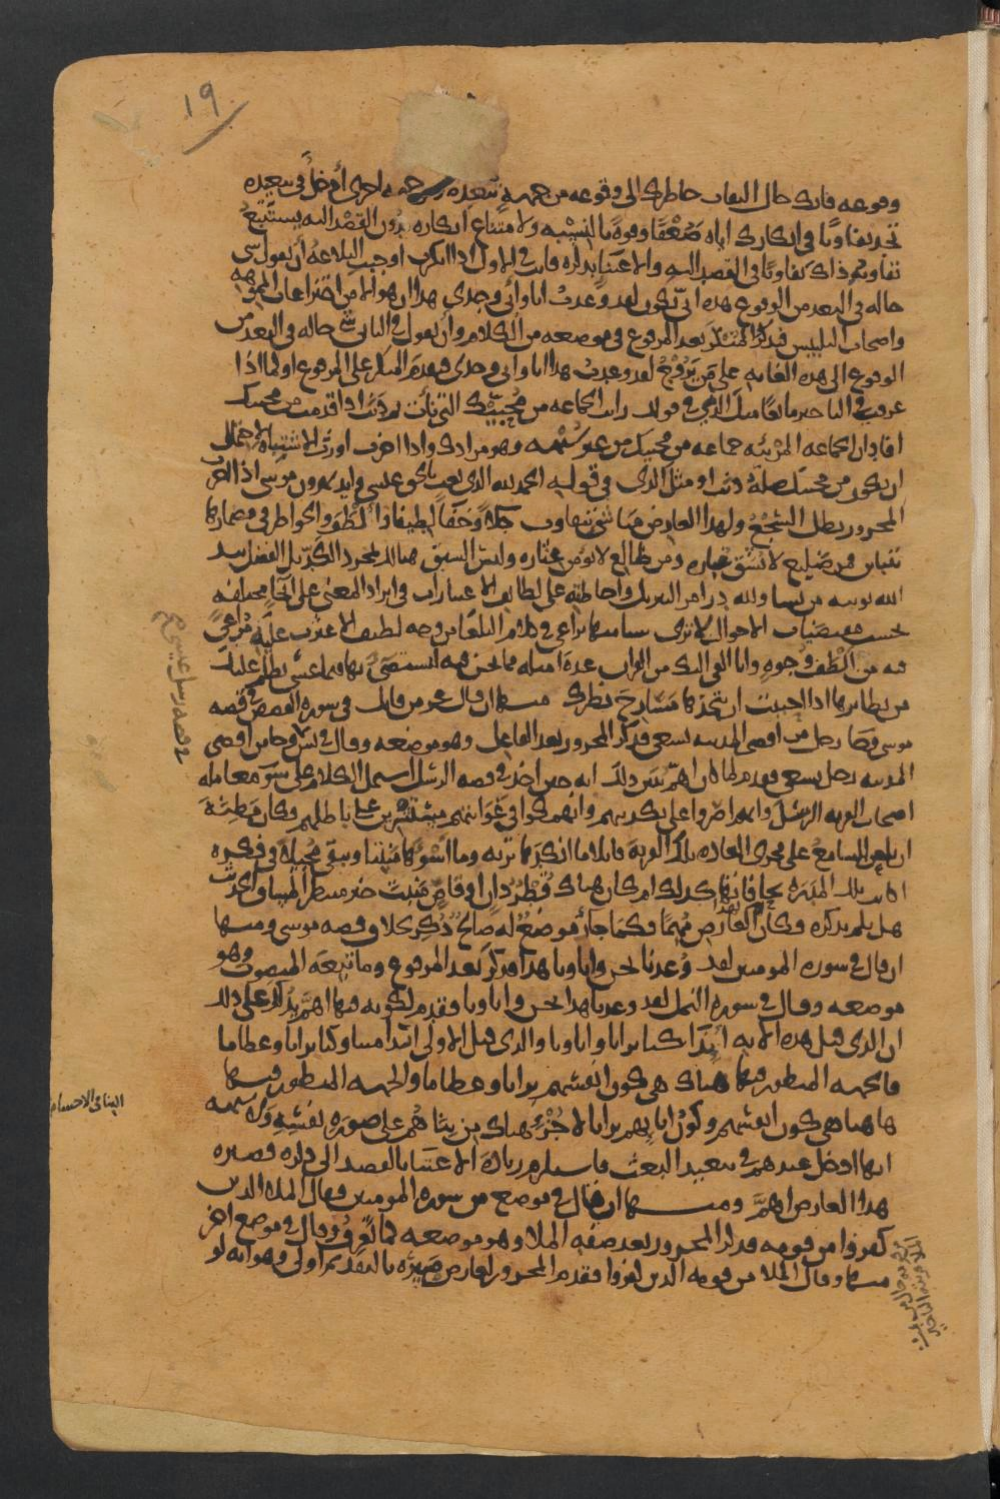 ١٩
وقوعه فانك حال التفات خاطرك الى وقوعه من جهة تبعده ومن جهة اخرى أدخل في تبعيده
تجد تفاوتا في انكارك اياه ضعفا وقوة بالنسبة ولامتناع انكاره بدون القصد اليه يستتبع
تفاوته ذاك تفاوتا في القصد اليه والاعتناء بذكره فانت في الاول اذا انكرت اوجبت البلاغة أن تقول شئ
حاله في البعد من الوقوع هذه انى يكون لقد وعدت انا وأبى وجدى هذا ان هو الا من اختراعات المموهة
واصحاب التلبيس فتذكر المنكر بعد المرفوع في موضعه من الكلام وأن تقول في الثانى شئ حاله في البعد من
الوقوع الى هذه الغاية على من يروج لقد وعدت هذا انا وابى وجدى فتقدم المنكر على المرفوع او كما اذا
عرفت في التاخير مانعا مثل الذي في قولك رايت الجماعة من محبيك التي نأت لو دنت اذا قدمت من محبيك
افاد ان الجماعة المرئية جماعة من محبيك من غير شبهة وهو مرادك واذا اخرت اورث الاشتباه لاحتمال
ان يكون من محبيك صلة دنت او مثل الذى في قولك الحمد لله الذى بعث باخى عيسى وايد بهرون موسى اذا اخرت
المجرور بطل السجع ولهذا العارض مما شئ تتفاوت جلاء وخفاء لطيفا والطف والخواطر في مضمارها
تتباين فمن ضليع لا يشق غباره ومن ظالع لا يؤمن عثاره وليس السبق هنالك بمجرد الكد بل الفضل بيد
الله يوتيه من يشا ولله در امر التنزيل واحاطته على لطايف الاعتبارات في ايراد المعنى على أنحاء مختلفة
بحسب مقتضيات الاحوال لا ترى شيا منها يراعى في كلام البلغا من وجه لطيف الا عثرت عليه مراعى
فيه من ألطف وجوه وانا القى اليك من القران عدة امثلة مما نحن فيه لتستضئ بها فيما عسى يظلم عليك
من نظايرها اذا احببت ان تتخذها مسارح نظرك منها ان قال عز من قائل في سورة القصص في قصة
موسى وجا رجل من اقصى المدينة يسعى فذكر المجرور بعد الفاعل وهو موضعه وقال في يس وجا من اقصى
المدينة رجل يسعى فقدم لما كان اهم يبين ذلك انه حين اخذ في قصة الرسل اشتمل الكلام على سوء معاملة
اصحاب القرية الرسل وانهم اصروا على تكذيبهم وانهمكوا في غوايتهم مستمرين على باطلهم فكان مظنة
ان يلعن السامع على مجرى العادة تلك القرية قائلا ما انكدها تربة وما اسوءها منبتا ويبقى مجيلا في فكره
اكانت تلك المدرة بحافاتها كذلك ام كان هناك قطر دان او قاص منبت خير منتظر المساق الحديث
هل يلم بذكره فكان لهذا العارض مهما فكما جاء موضع له صالح ذكر بخلاف قصة موسى ومنها
ان قال في سورة المومنين لقد وعدنا نحن واباونا هذا فذكر بعد المرفوع وما تبعه المنصوب وهو
موضعه وقال في سورة النمل لقد وعدنا هذا نحن واباونا فقدم لكونه فيها اهم يدلك على ذلك
ان الذى قبل هذه الاية أئذا كنا ترابا واباونا والذى قبل الاولى ائذا متنا وكنا ترابا وعظاما
فالجهة المنظور فيها هناك هى كون انفسهم ترابا وعظاما والجهة المنظور فيها
هاهنا هى كون انفسهم وكون ابايهم ترابا لا جزء هناك من بناهم على صورة نفسه ولا شبهة
انها ادخل عندهم في تبعيد البعث فاستلزم زيادة الاعتنا بالقصد الى ذكره فصيره
هذا العارض اهم ومنها ان قال في موضع من سورة المومنين فقال الملا الذين
كفروا من قومه فذكر المجرور بعد صفة الملا وهو موضعه كما تعرف وقال في موضع اخر
منها وقال الملا من قومه الذين كفروا فقدم المجرور لعارض صيره بالتقديم اولى وهو انه لو
في قصة رسل عيسى عم